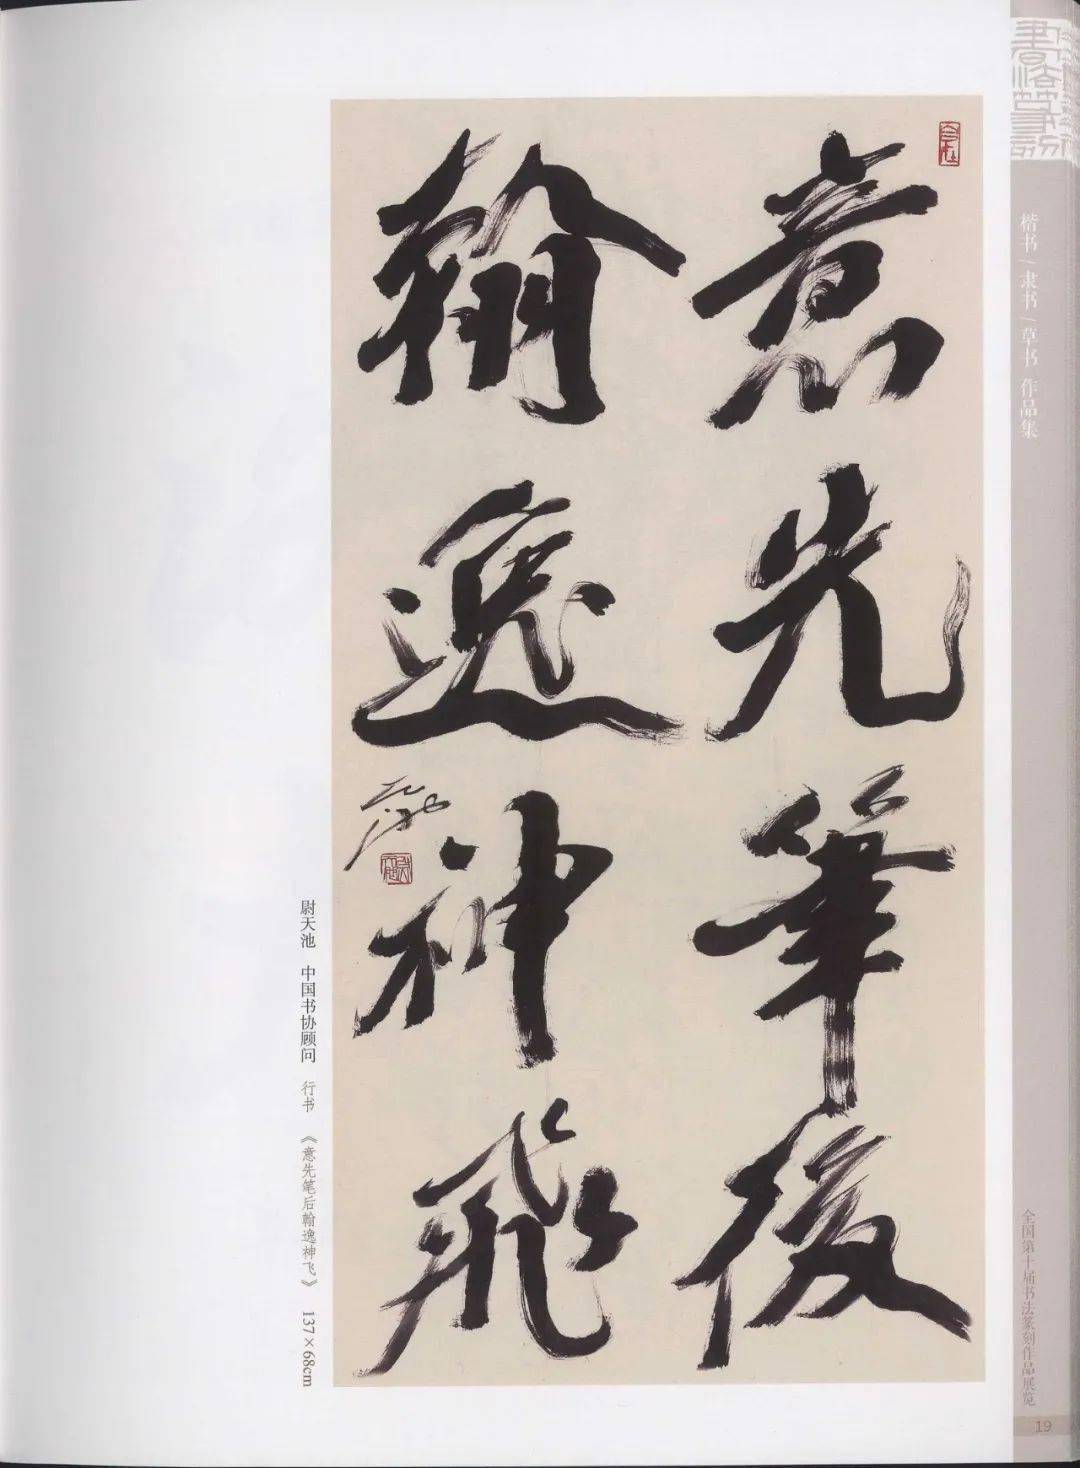 意先筆後
翰逸神飛
天池
尉天池 中国书协顾问 行书 《意先笔后翰逸神飞》 137×68cm
楷书/隶书/草书 作品集
全国第十届书法篆刻作品展览
19